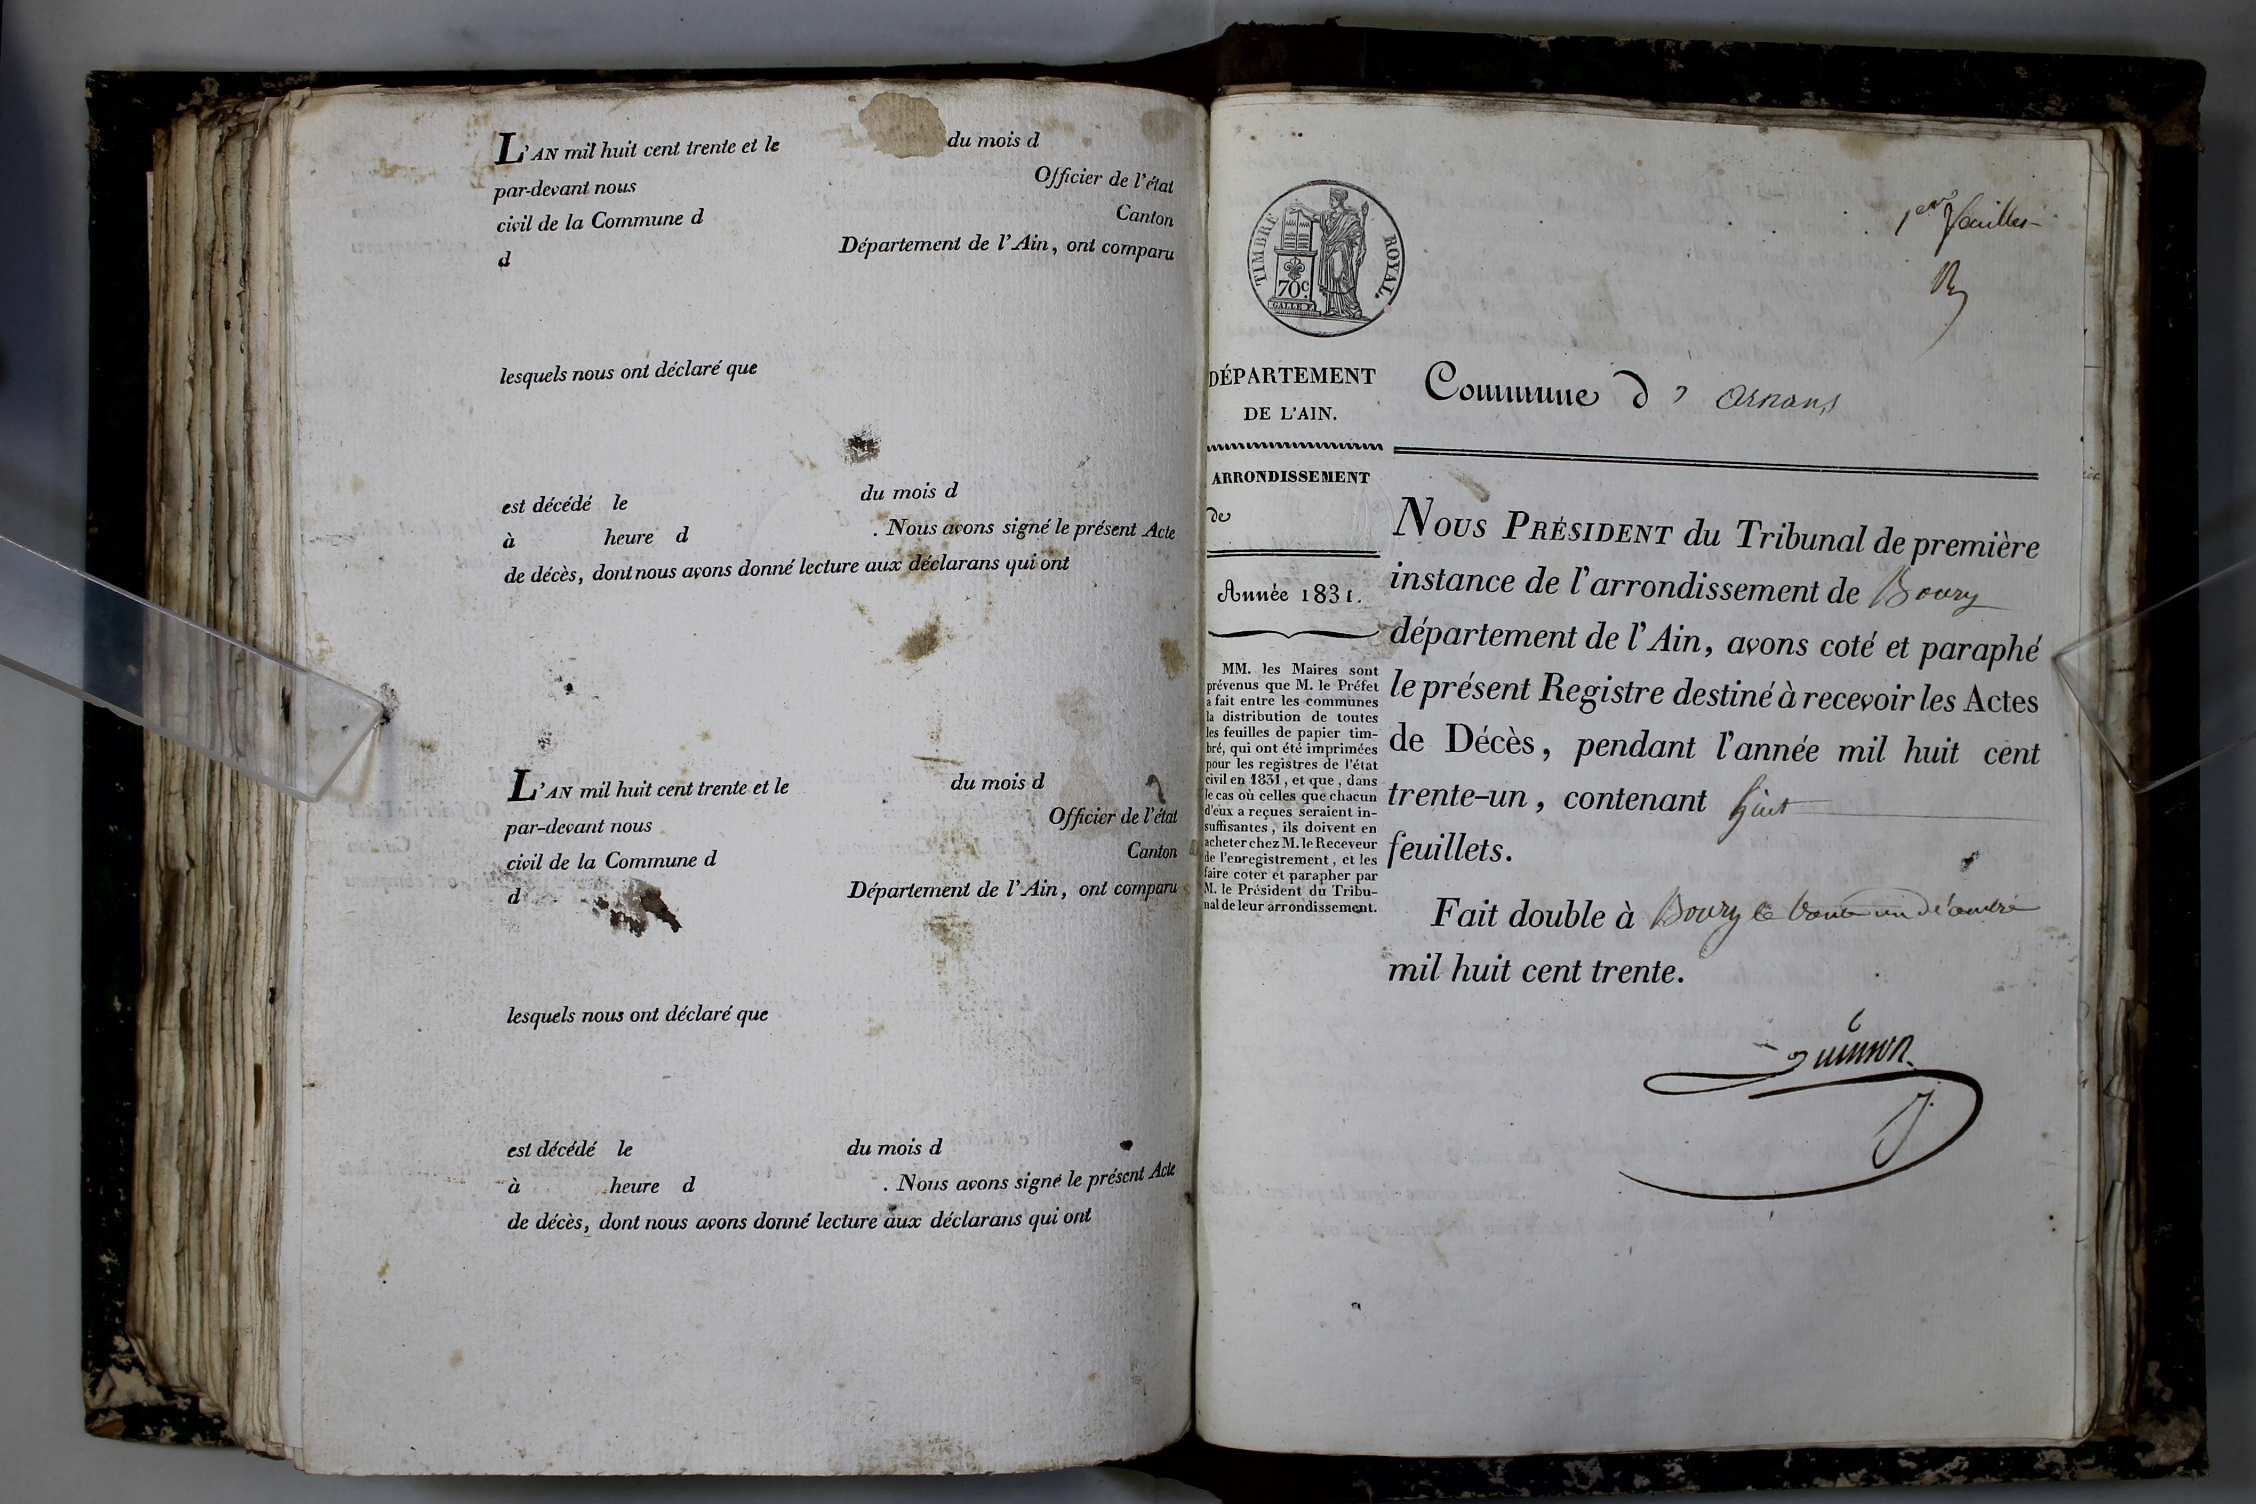 L'AN mil huit cent trente et le du mois d
par-devant nous Officier de l'état
civil de la Commune d Canton
d Département de l'Ain, ont comparu
lesquels nous ont déclaré que
est décédé le du mois d
à heure d . Nous avons signé le présent Acte
de décès, dont nous avons donné lecture aux déclarans qui ont
L'AN mil huit cent trente et le du mois d
par-devant nous Officier de l'état
civil de la Commune d Canton
d Département de l'Ain, ont comparu
lesquels nous ont déclaré que
est décédé le du mois d
à heure d . Nous avons signé le présent Acte
de décès, dont nous avons donné lecture aux déclarans qui ont
TIMBRE ROYAL.
70c.
1er feuillet
DÉPARTEMENT
DE L'AIN.
ARRONDISSEMENT
de
Année 1831.
MM. les Maires sont
prévenus que M. le Préfet
a fait entre les communes
la distribution de toutes
les feuilles de papier tim-
bré, qui ont été imprimées
pour les registres de l'état
civil en 1831, et que, dans
le cas où celles que chacun
d'eux a reçues seraient in-
suffisantes, ils doivent en
acheter chez M. le Receveur
de l'enregistrement, et les
faire coter et parapher par
M. le Président du Tribu-
nal de leur arrondissement.
Commune d'Arnans
NOUS PRÉSIDENT du Tribunal de première
instance de l'arrondissement de Bourg
département de l'Ain, avons coté et paraphé
le présent Registre destiné à recevoir les Actes
de Décès, pendant l'année mil huit cent
trente-un, contenant huit
feuillets.
Fait double à Bourg le trente un décembre
mil huit cent trente.